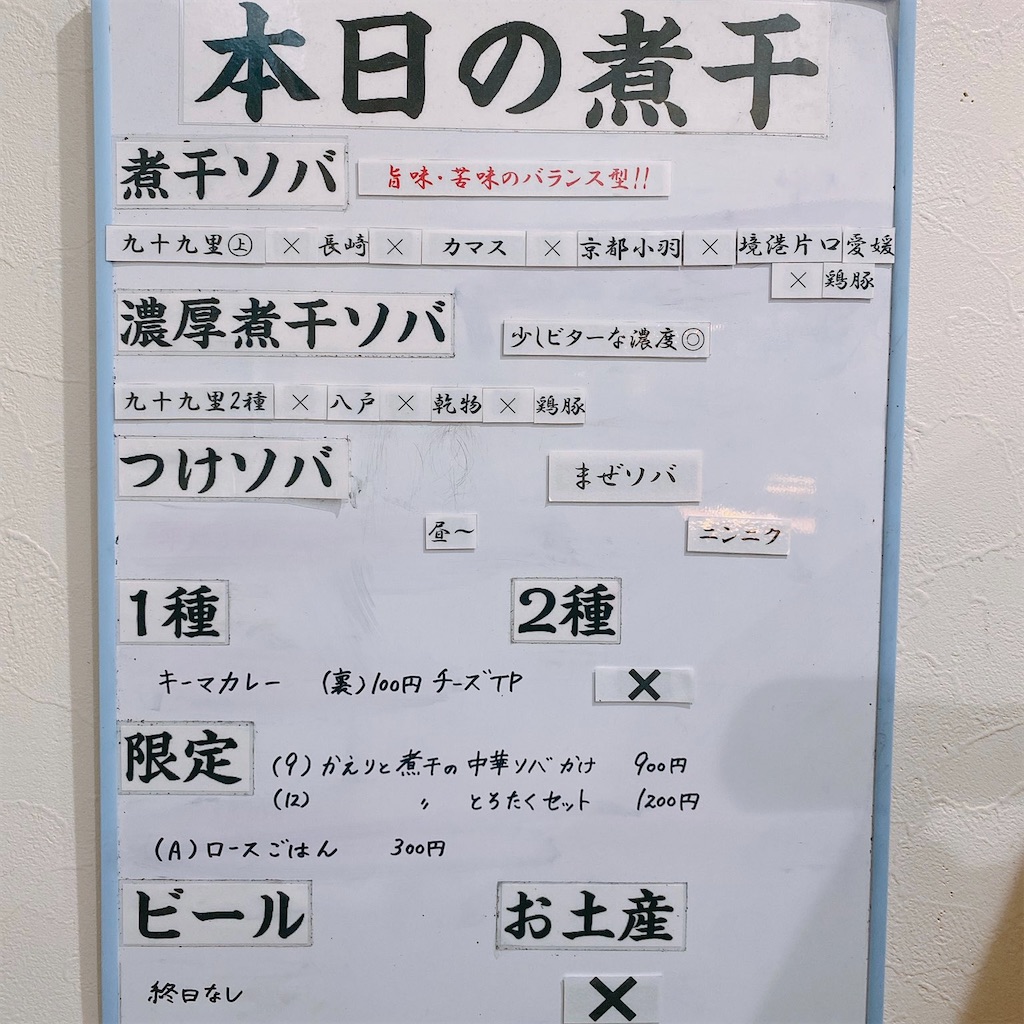 本日の煮干
煮干ソバ 旨味・苦味のバランス型!!
九十九里㊤ × 長崎 × カマス × 京都小羽 × 境港片口 愛媛
× 鶏豚
濃厚煮干ソバ 少しビターな濃度◎
九十九里2種 × 八戸 × 乾物 × 鶏豚
つけソバ まぜソバ
昼〜 ニンニク
1種 2種
キーマカレー (裏)100円 チーズTP ×
限定 (9)かえりと煮干の中華ソバかけ 900円
(12) 〃 とろたくセット 1200円
(A)ロースごはん 300円
ビール お土産
終日なし ×